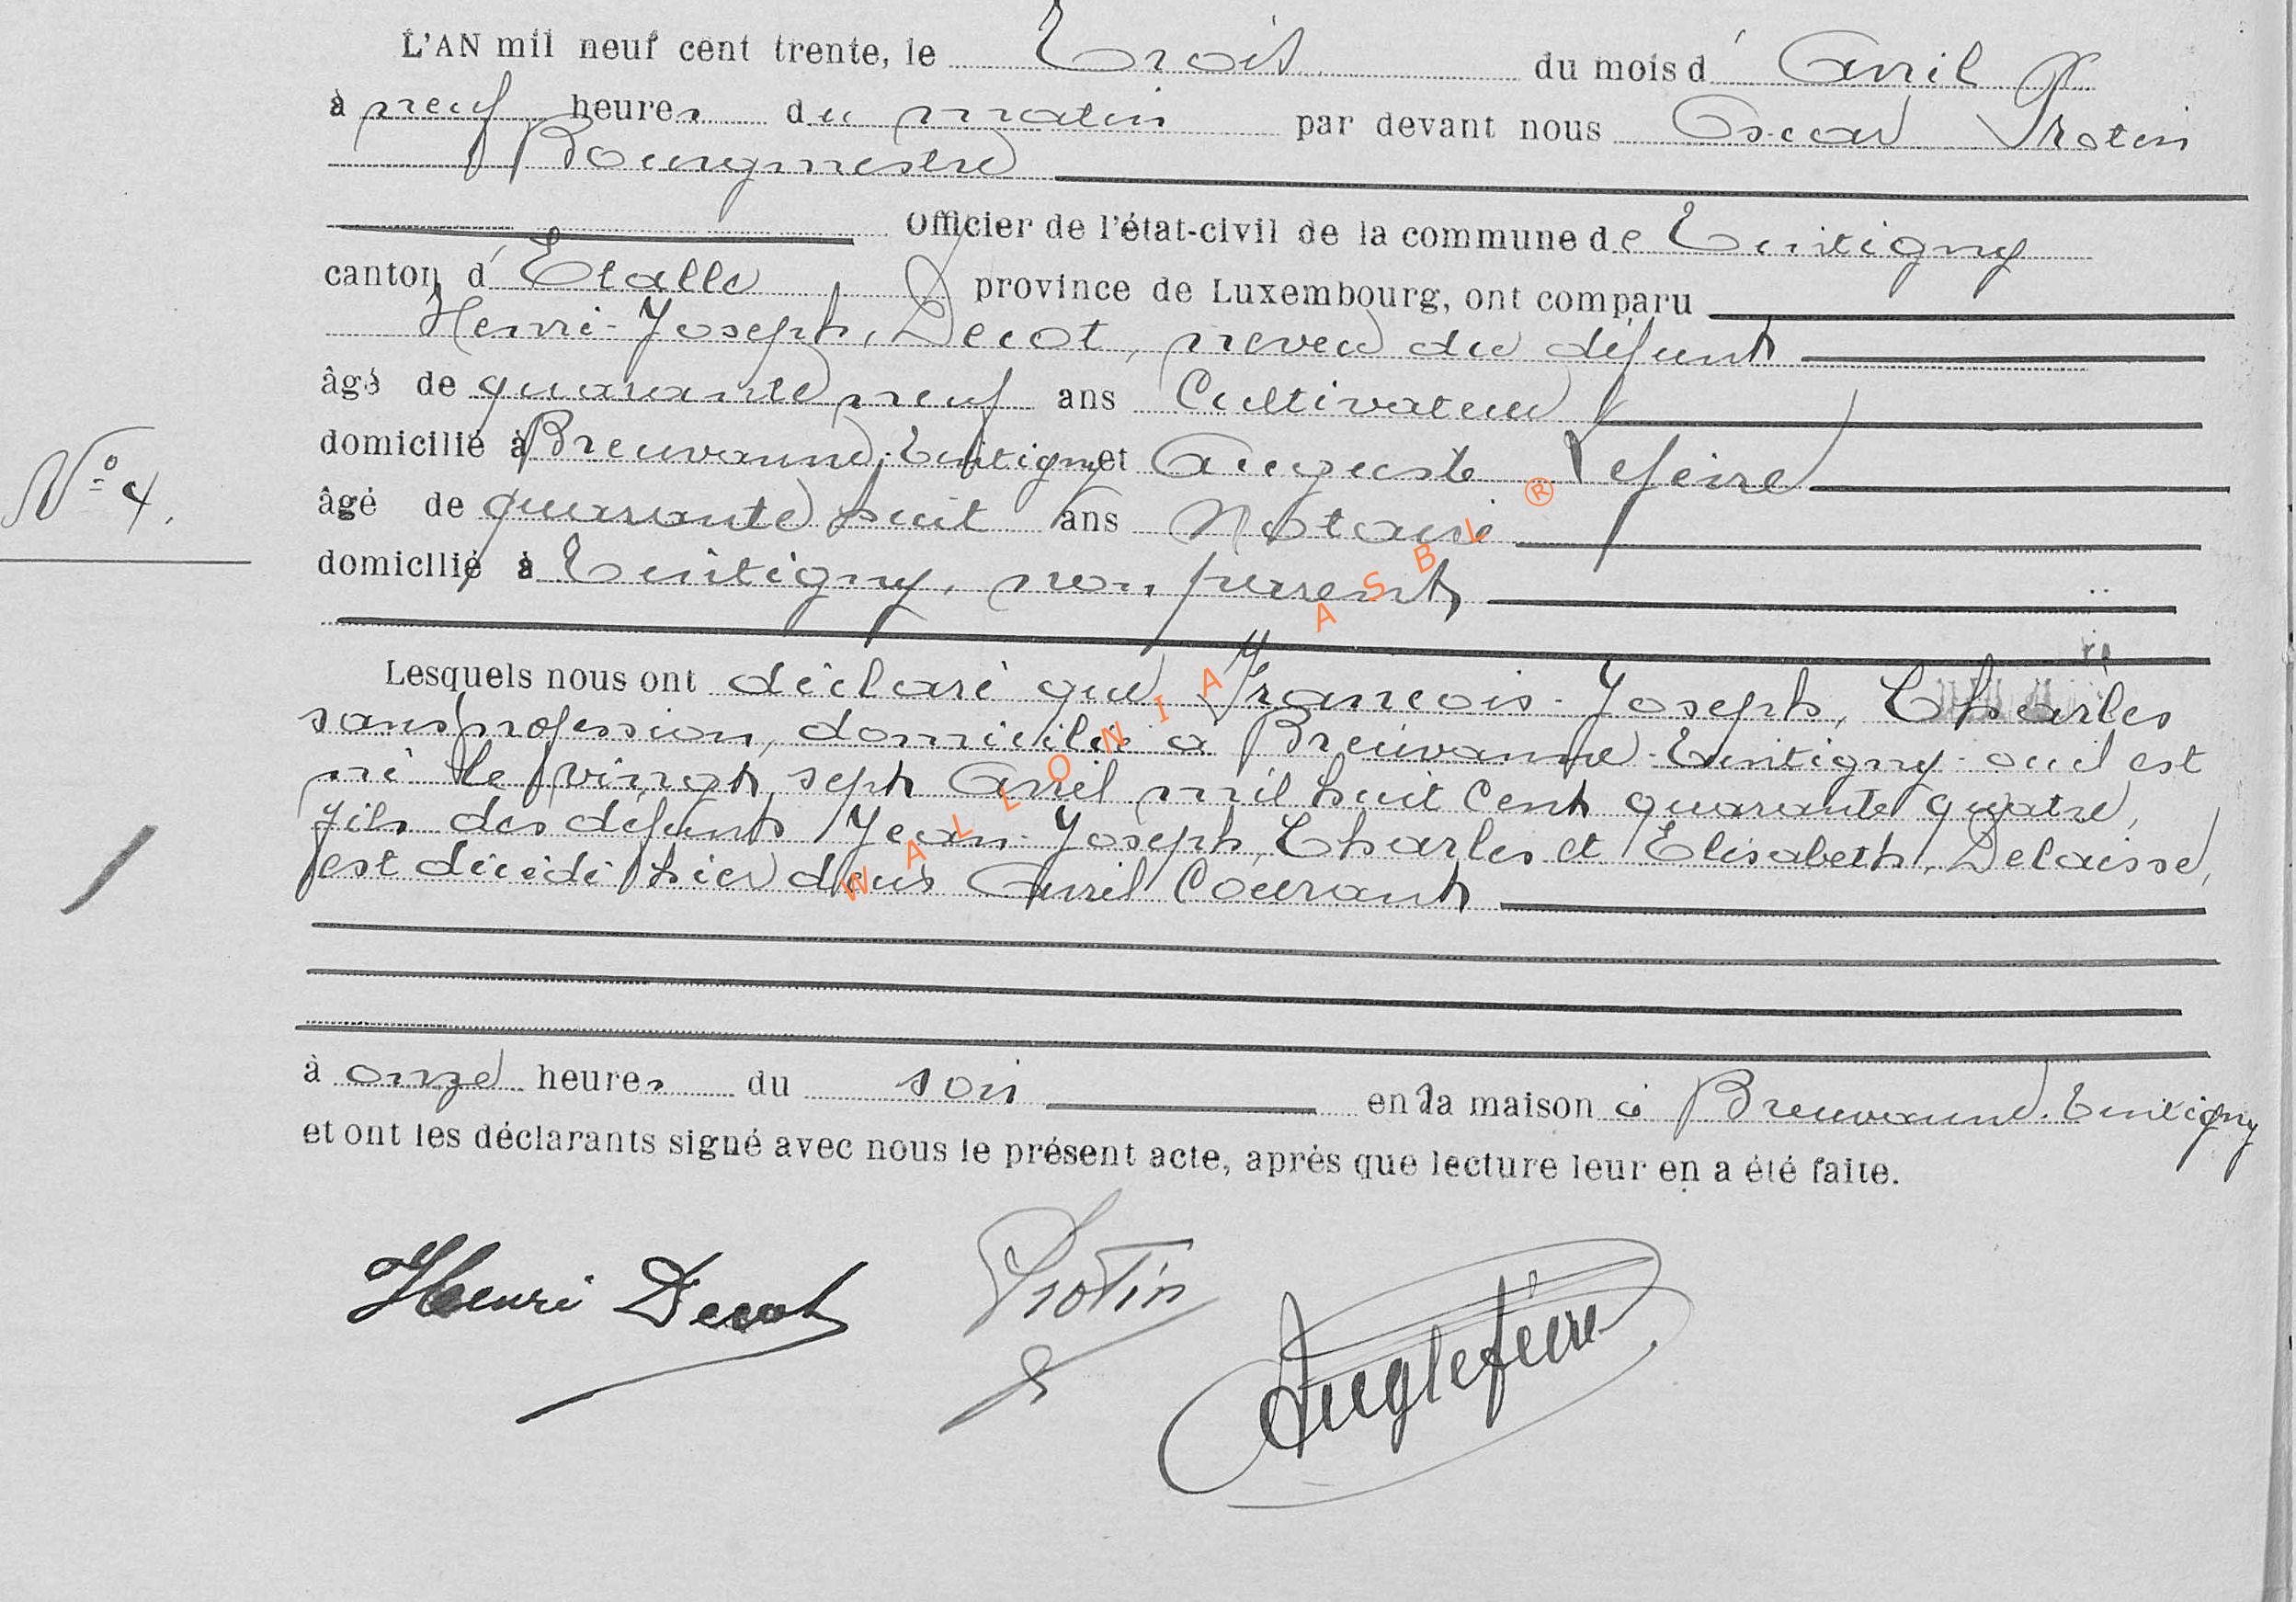 L'AN mil neuf cent trente, le Trois du mois d'Avril
à neuf heures du matin par devant nous Oscar Protin
Bourgmestre
Officier de l'état-civil de la commune de Tintigny
canton d'Etalle province de Luxembourg, ont comparu
Henri-Joseph, Decot, neveu du défunt
âgé de quarante neuf ans Cultivateur
domicilié à Breuvanne-Tintigny et Auguste Lefèvre
N° 4.
âgé de quarante huit ans Notaire
domicilié à Tintigny, non parent
Lesquels nous ont déclaré que François-Joseph, Charles
sans profession, domicilié à Breuvanne-Tintigny où il est
né le vingt sept Avril mil huit Cent quarante quatre,
fils des défunts Jean-Joseph, Charles et Elisabeth, Delaisse,
est décédé hier deux Avril Courant
à onze heures du soir en la maison à Breuvanne-Tintigny
et ont les déclarants signé avec nous le présent acte, après que lecture leur en a été faite.
Henri Decot Protin Aug Lefèvre
WALLONIA ASBL ®